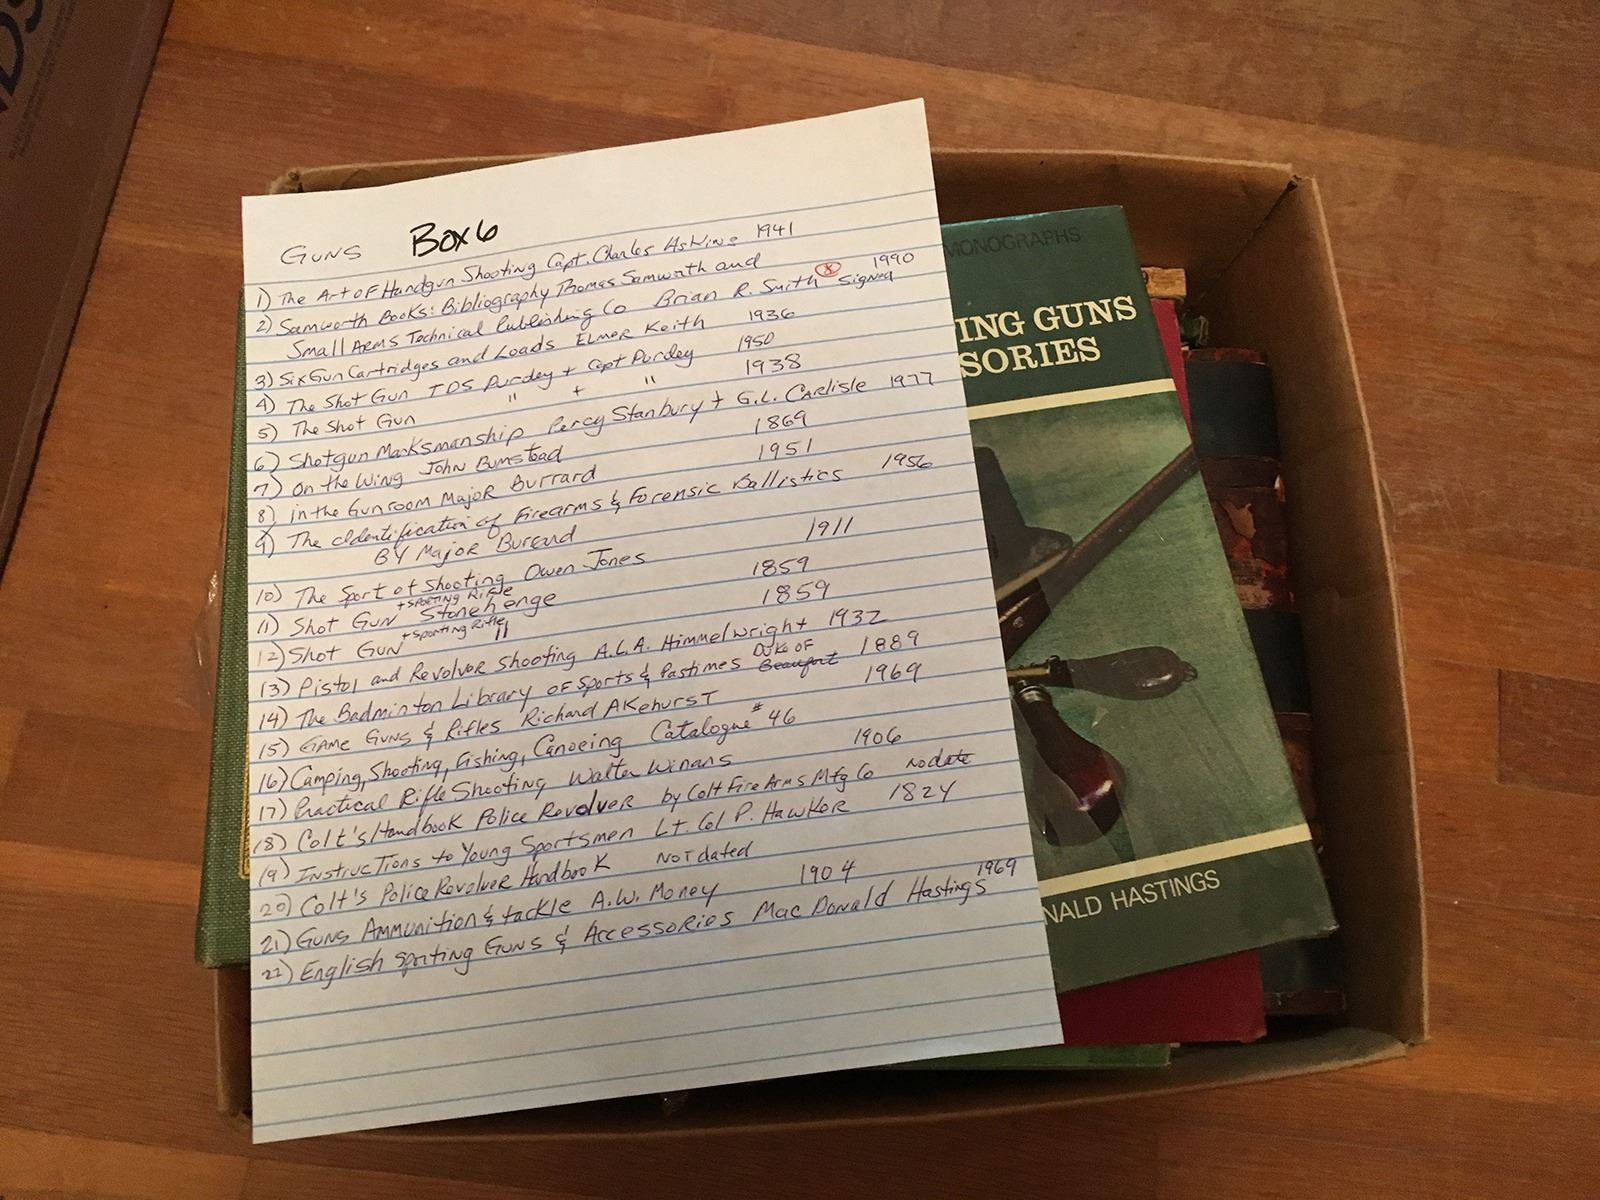 GUNS Box 6
1) The Art of Handgun Shooting Capt. Charles Askins 1941
2) Samworth Books: Bibliography Thomas Samworth and 1990
Small Arms Technical Publishing Co Brian R. Smith Ⓧ Signed
3) SixGun Cartridges and Loads Elmer Keith 1936
4) The Shot Gun TDS Purdey + Capt Purdey 1950
5) The Shot Gun " + " 1938
6) Shotgun Marksmanship Percy Stanbury + G.L. Carlisle 1977
7) On the Wing John Bumstead 1869
8) in the Gunroom Major Burrard 1951
9) The Identification of Firearms & Forensic Ballistics 1956
BY Major Burrard
10) The Sport of Shooting Owen Jones 1911
11) Shot Gun + Sporting Rifle Stonehenge 1859
12) Shot Gun + Sporting Rifle " 1859
13) Pistol and Revolver Shooting A.L.A. Himmelwright 1932
14) The Badminton Library of Sports & Pastimes Duke of Beaufort 1889
15) Game Guns & Rifles Richard Akehurst 1969
16) Camping, Shooting, Fishing, Canoeing Catalogue #46
17) Practical Rifle Shooting Walter Winans 1906
18) Colt's Handbook Police Revolver by Colt Fire Arms Mfg Co no date
19) Instructions to Young Sportsmen Lt. Col P. Hawker 1824
20) Colt's Police Revolver Handbook Not dated
21) Guns Ammunition & tackle A.W. Money 1904
22) English Sporting Guns & Accessories MacDonald Hastings 1969
MONOGRAPHS
ING GUNS
SORIES
NALD HASTINGS